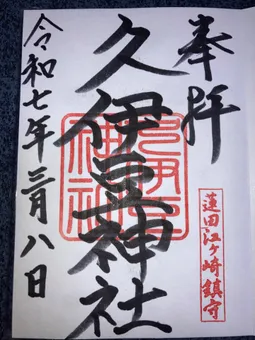 奉拝
蓮田江ヶ崎鎮守
久伊豆神社
令和七年三月八日